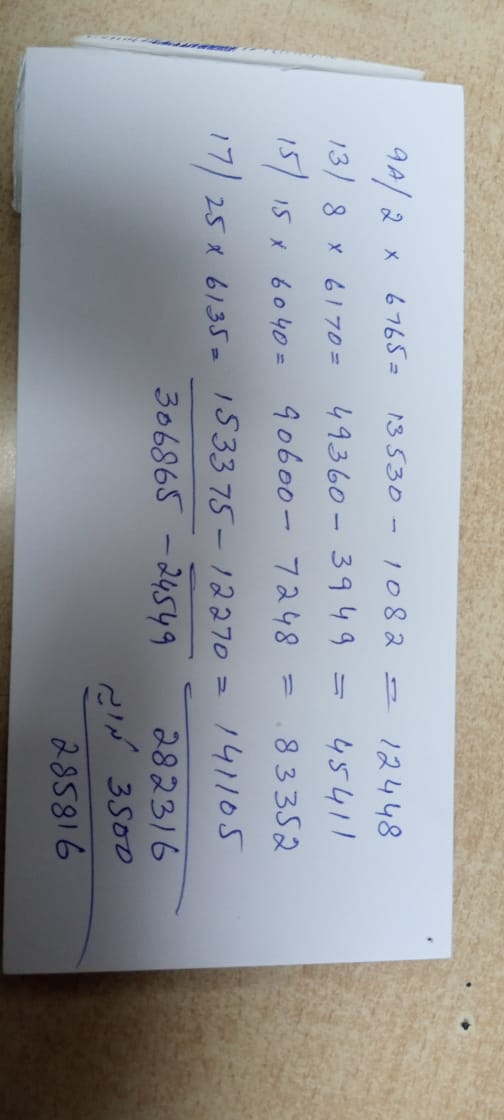 9A) 2 x 6765 = 13530 - 1082 = 12448
13) 8 x 6170 = 49360 - 3949 = 45411
15) 15 x 6040 = 90600 - 7248 = 83352
17) 25 x 6135 = 153375 - 12270 = 141105
306865 - 24549 282316
3500
285816